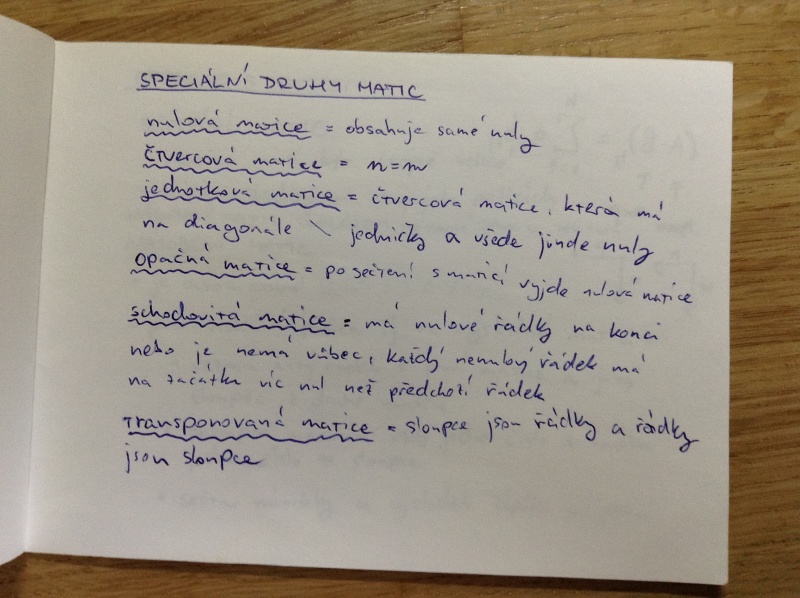 SPECIÁLNÍ DRUHY MATIC
nulová matice = obsahuje samé nuly
čtvercová matice = n=m
jednotková matice = čtvercová matice, která má
na diagonále \ jedničky a všude jinde nuly
opačná matice = po sečtení s maticí vyjde nulová matice
schodovitá matice = má nulové řádky na konci
nebo je nemá vůbec, každý nenulový řádek má
na začátku víc nul než předchozí řádek
transponovaná matice = sloupce jsou řádky a řádky
jsou sloupce